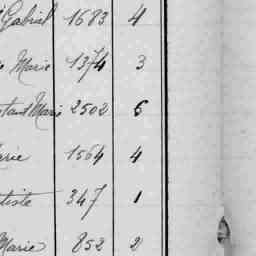 Gabriel 1683 4
Marie 1374 3
Marie 2502 6
arie 1564 4
tiste 347 1
Marie 852 2